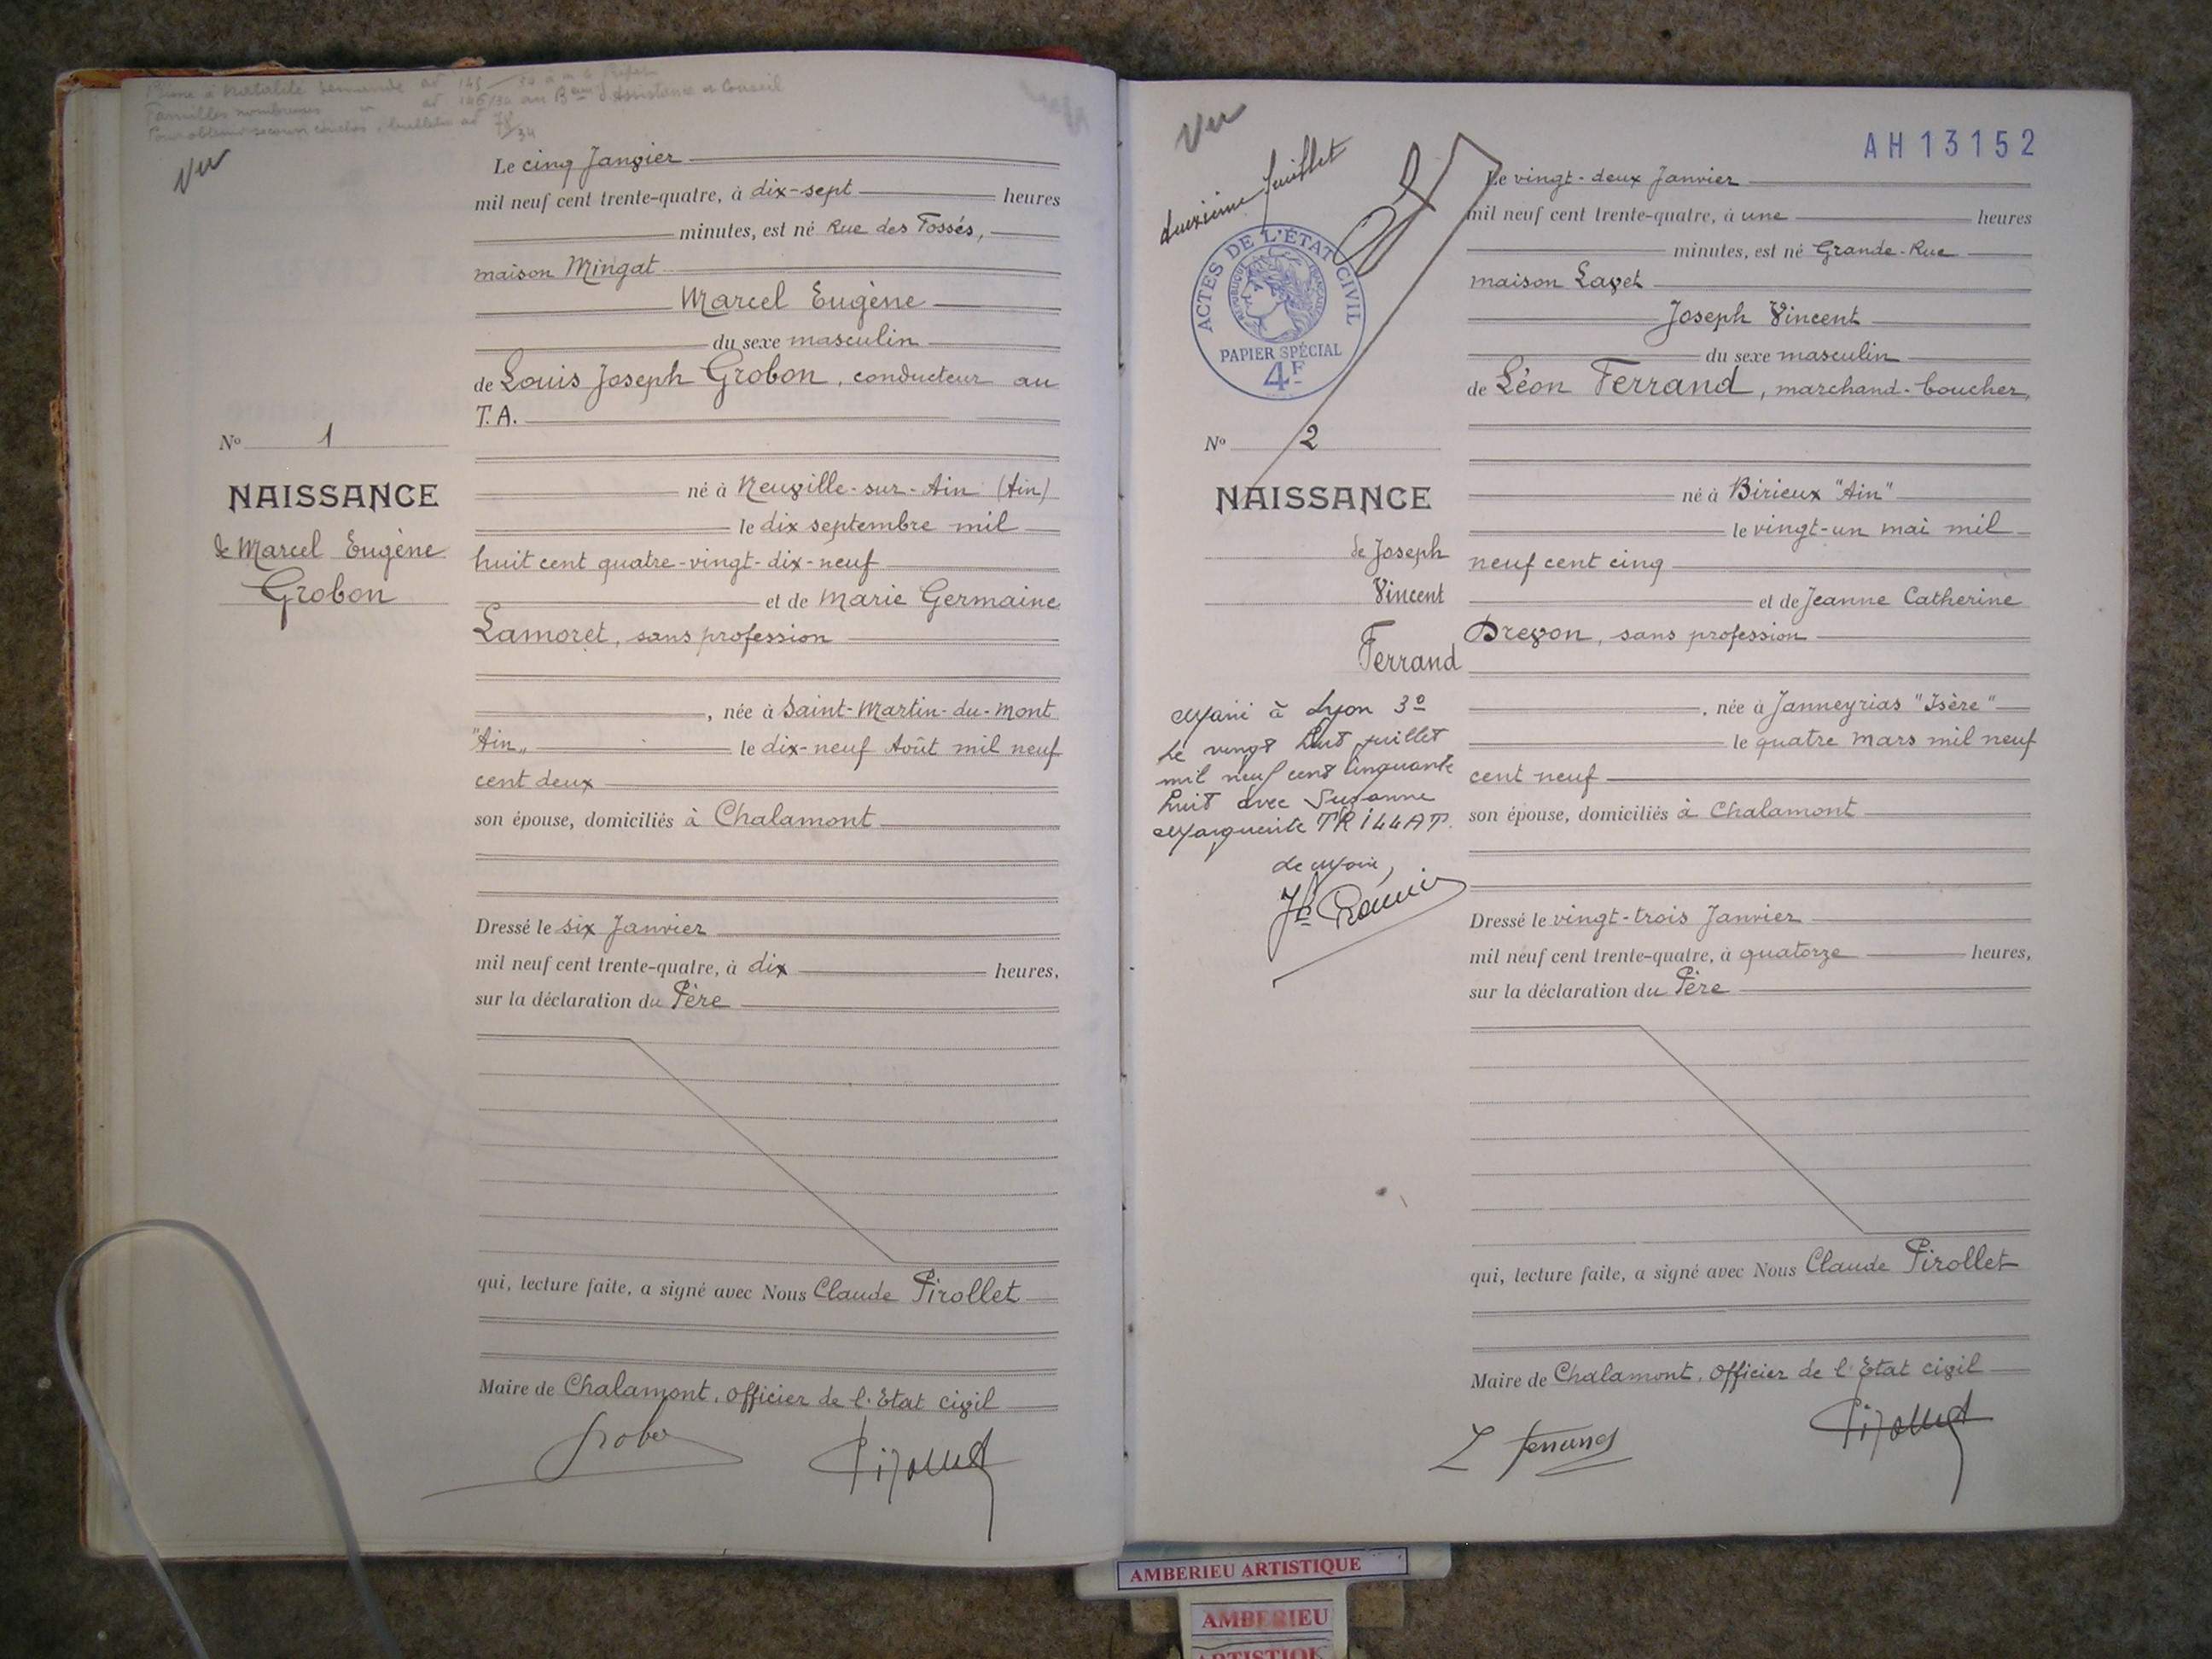 Prime à Natalité demande
Familles nombreuses
Vu
Le cinq Janvier
mil neuf cent trente-quatre, à dix-sept heures
minutes, est né Rue des Fossés,
maison Mingat
Marcel Eugène
du sexe masculin
de Louis Joseph Grobon, conducteur au
T.A.
né à Neuville-sur-Ain (Ain)
le dix septembre mil
huit cent quatre-vingt-dix-neuf
et de Marie Germaine
Lamoret, sans profession
, née à Saint-Martin-du-Mont
"Ain" le dix-neuf Août mil neuf
cent deux
son épouse, domiciliés à Chalamont
Dressé le six Janvier
mil neuf cent trente-quatre, à dix heures,
sur la déclaration du Père
qui, lecture faite, a signé avec Nous Claude Pirollet
Maire de Chalamont, Officier de l'Etat civil
Pirollet
N° 1
NAISSANCE
de Marcel Eugène
Grobon
Vu
deuxième feuillet
ACTES DE L'ÉTAT CIVIL
RÉPUBLIQUE FRANÇAISE
PAPIER SPÉCIAL
4F
N° 2
NAISSANCE
de Joseph
Vincent
Ferrand
Marié à Lyon 3e
le vingt huit juillet
mil neuf cent cinquante
huit avec Suzanne
Marguerite TRILLAT.
le Maire,
AH13152
Le vingt-deux Janvier
mil neuf cent trente-quatre, à une heures
minutes, est né Grande-Rue
maison Lavet
Joseph Vincent
du sexe masculin
de Léon Ferrand, marchand-boucher,
né à Birieux "Ain"
le vingt-un mai mil
neuf cent cinq
et de Jeanne Catherine
Drevon, sans profession
, née à Janneyrias "Isère"
le quatre mars mil neuf
cent neuf
son épouse, domiciliés à Chalamont
Dressé le vingt-trois Janvier
mil neuf cent trente-quatre, à quatorze heures,
sur la déclaration du Père
qui, lecture faite, a signé avec Nous Claude Pirollet
Maire de Chalamont, Officier de l'Etat civil
L Ferrand Pirollet
AMBERIEU ARTISTIQUE
AMBERIEU
ARTISTIQUE